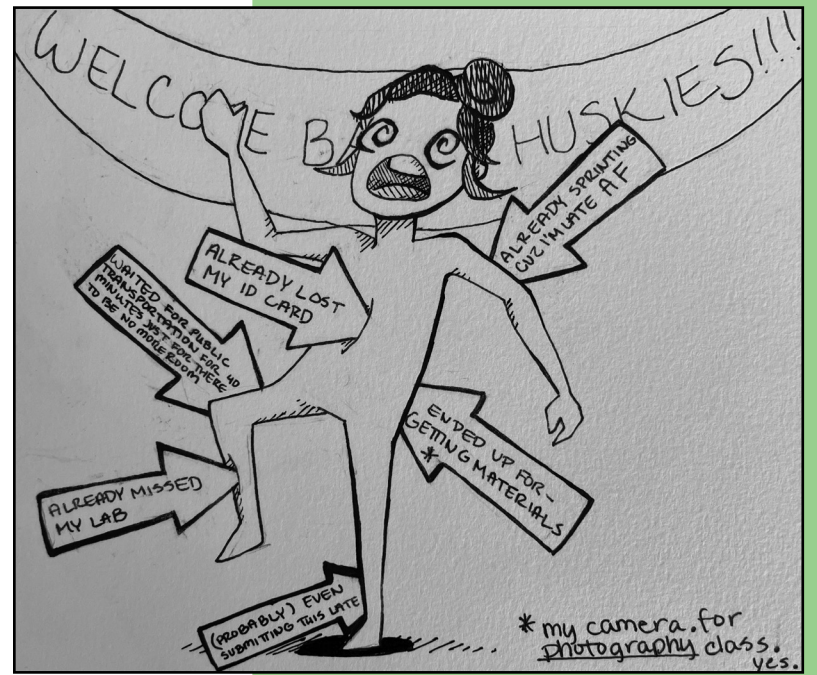 WELCOME BA HUSKIES!!!
ALREADY SPRINTING
CUZ I'M LATE AF
ALREADY LOST
MY ID CARD
WAITED FOR PUBLIC
TRANSPORTATION FOR 40
MINUTES JUST FOR THERE
TO BE NO MORE ROOM
ENDED UP FOR-
GETTING MATERIALS
*
ALREADY MISSED
MY LAB
(PROBABLY) EVEN
SUBMITTING THIS LATE
* my camera. for
photography class.
yes.